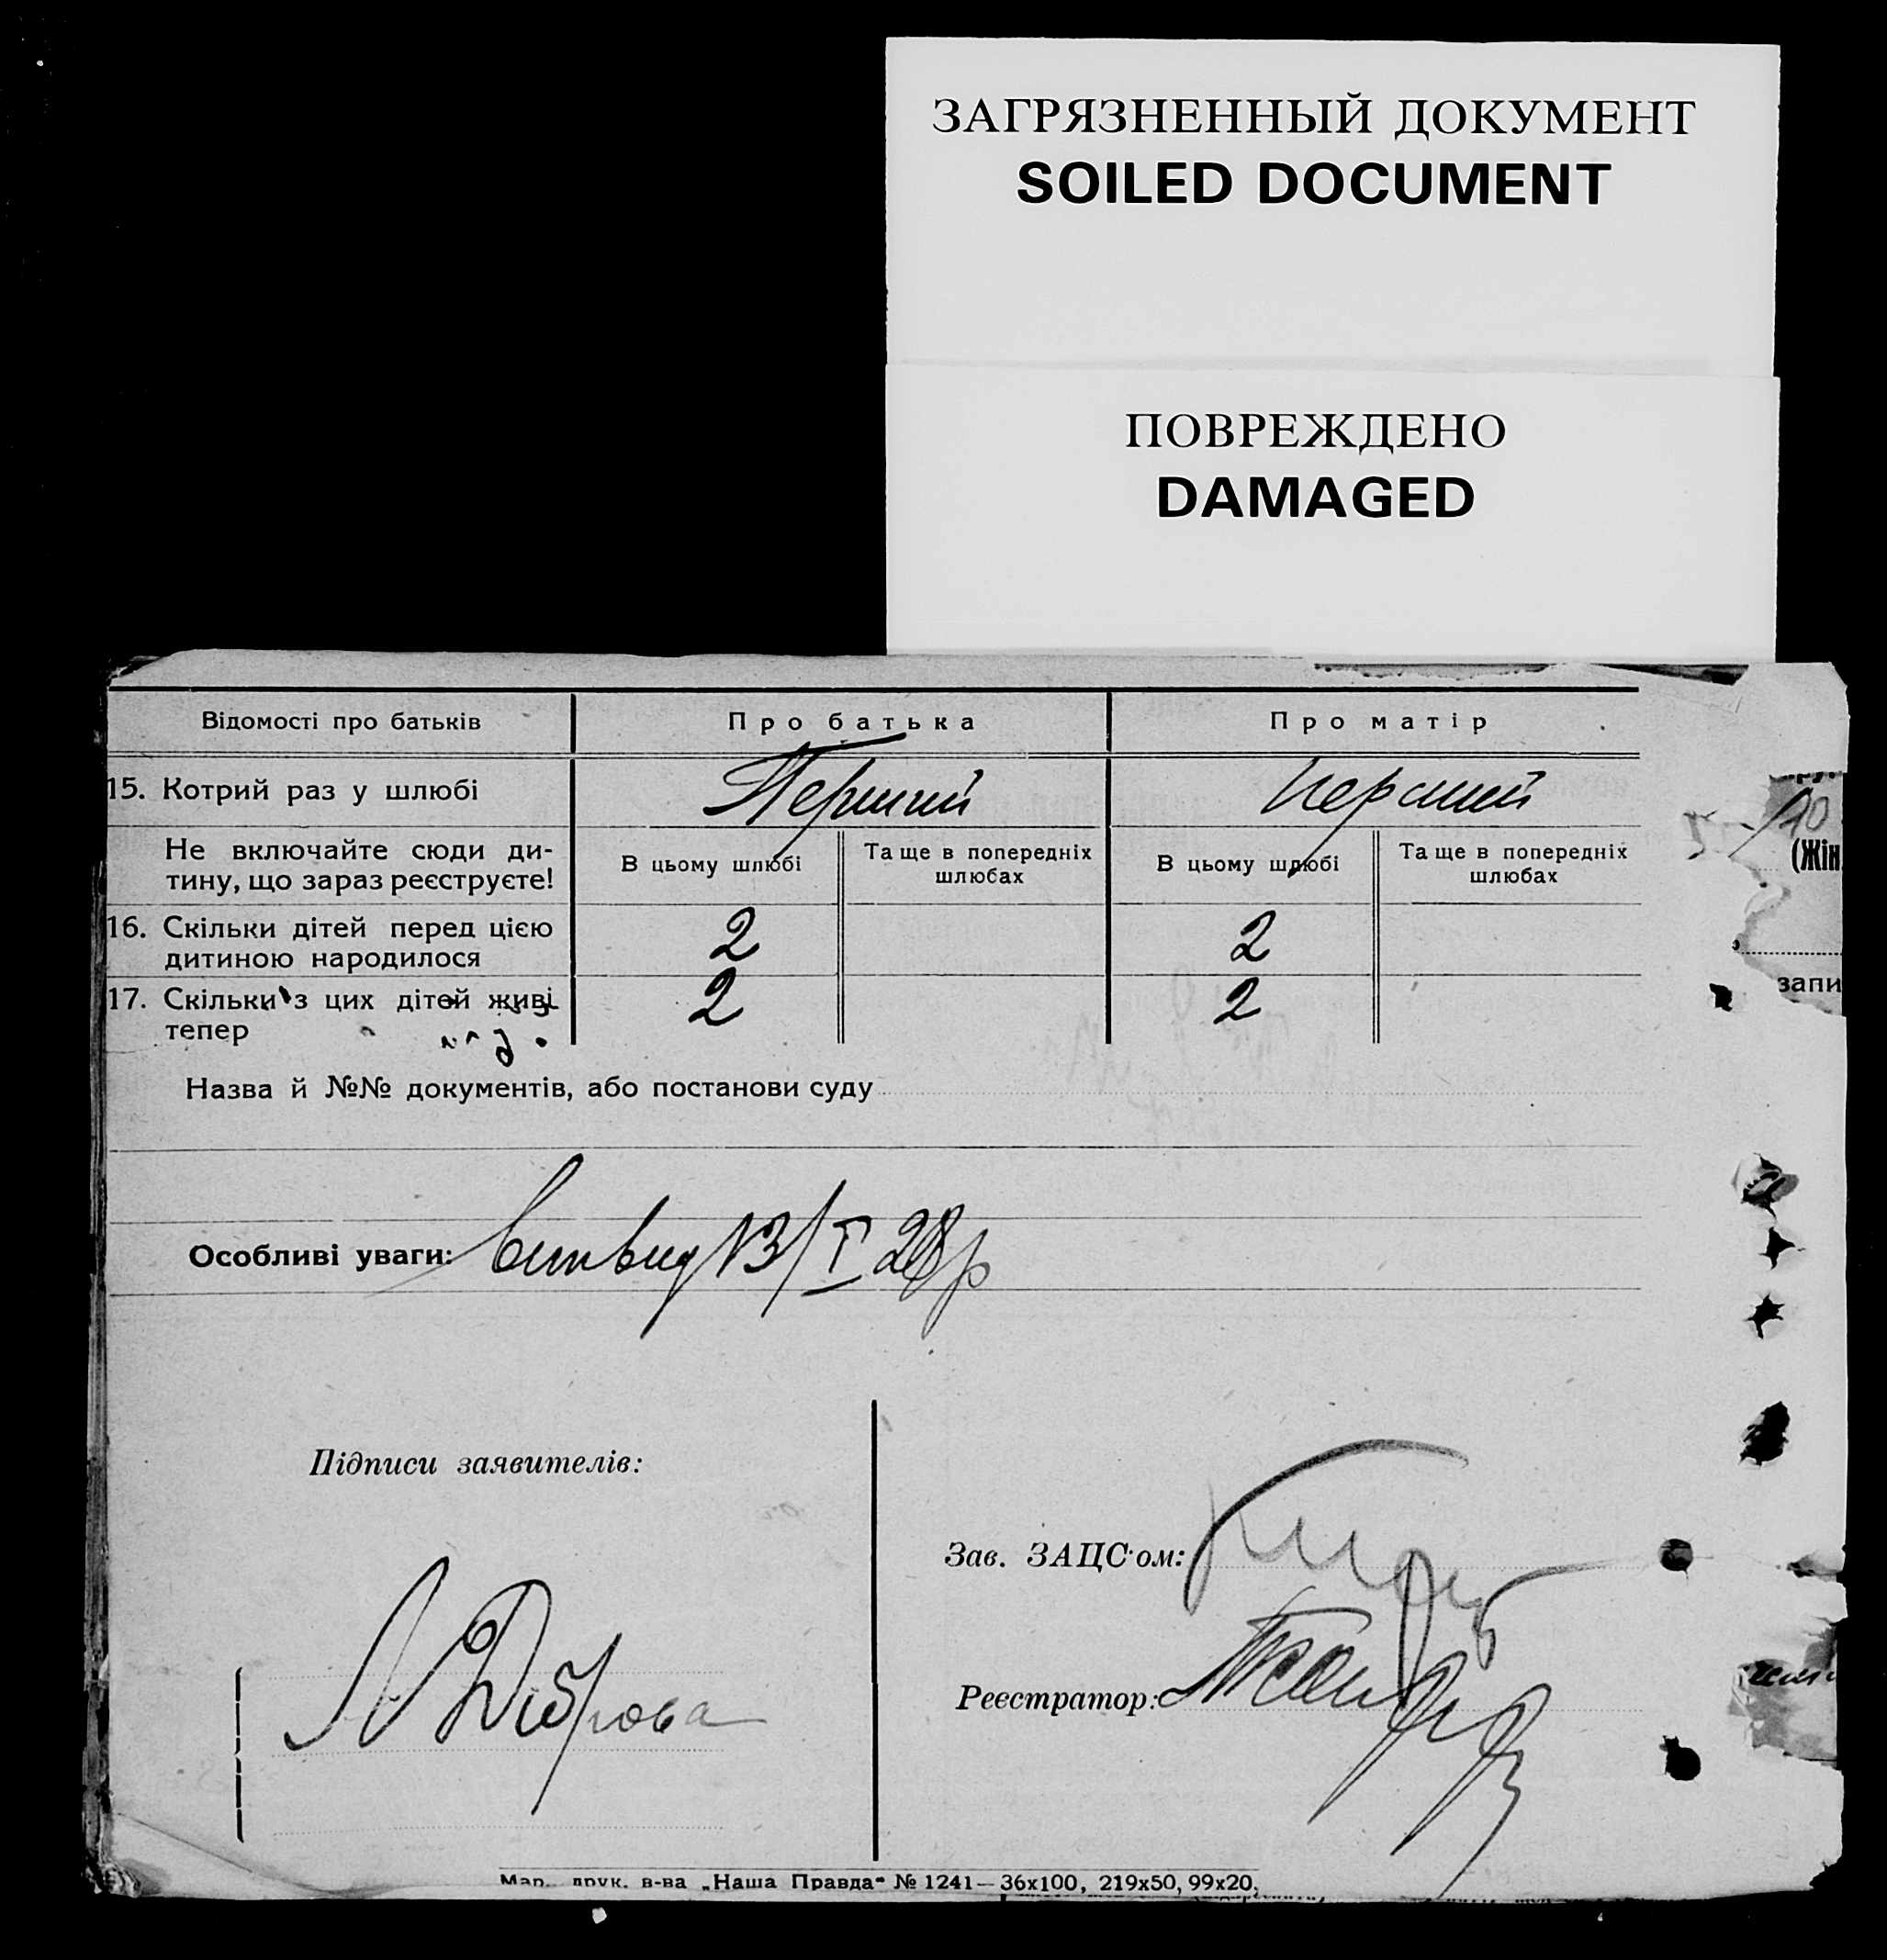 ЗАГРЯЗНЕННЫЙ ДОКУМЕНТ
SOILED DOCUMENT
ПОВРЕЖДЕНО
DAMAGED
Відомості про батьків
Про батька
Про матір
15. Котрий раз у шлюбі
Перший
Перший
Не включайте сюди ди-
тину, що зараз реєструєте!
В цьому шлюбі
Та ще в попередніх
шлюбах
В цьому шлюбі
Та ще в попередніх
шлюбах
16. Скільки дітей перед цією
дитиною народилося
2
2
17. Скільки з цих дітей живі
тепер
2
2
Назва й №№ документів, або постанови суду
Особливі уваги:
13/I 28 р
Підписи заявителів:
Діброва
Зав. ЗАЦС'ом:
Реєстратор:
Мар. друк. в-ва „Наша Правда" № 1241—36х100, 219х50, 99х20.
(Жін
запи